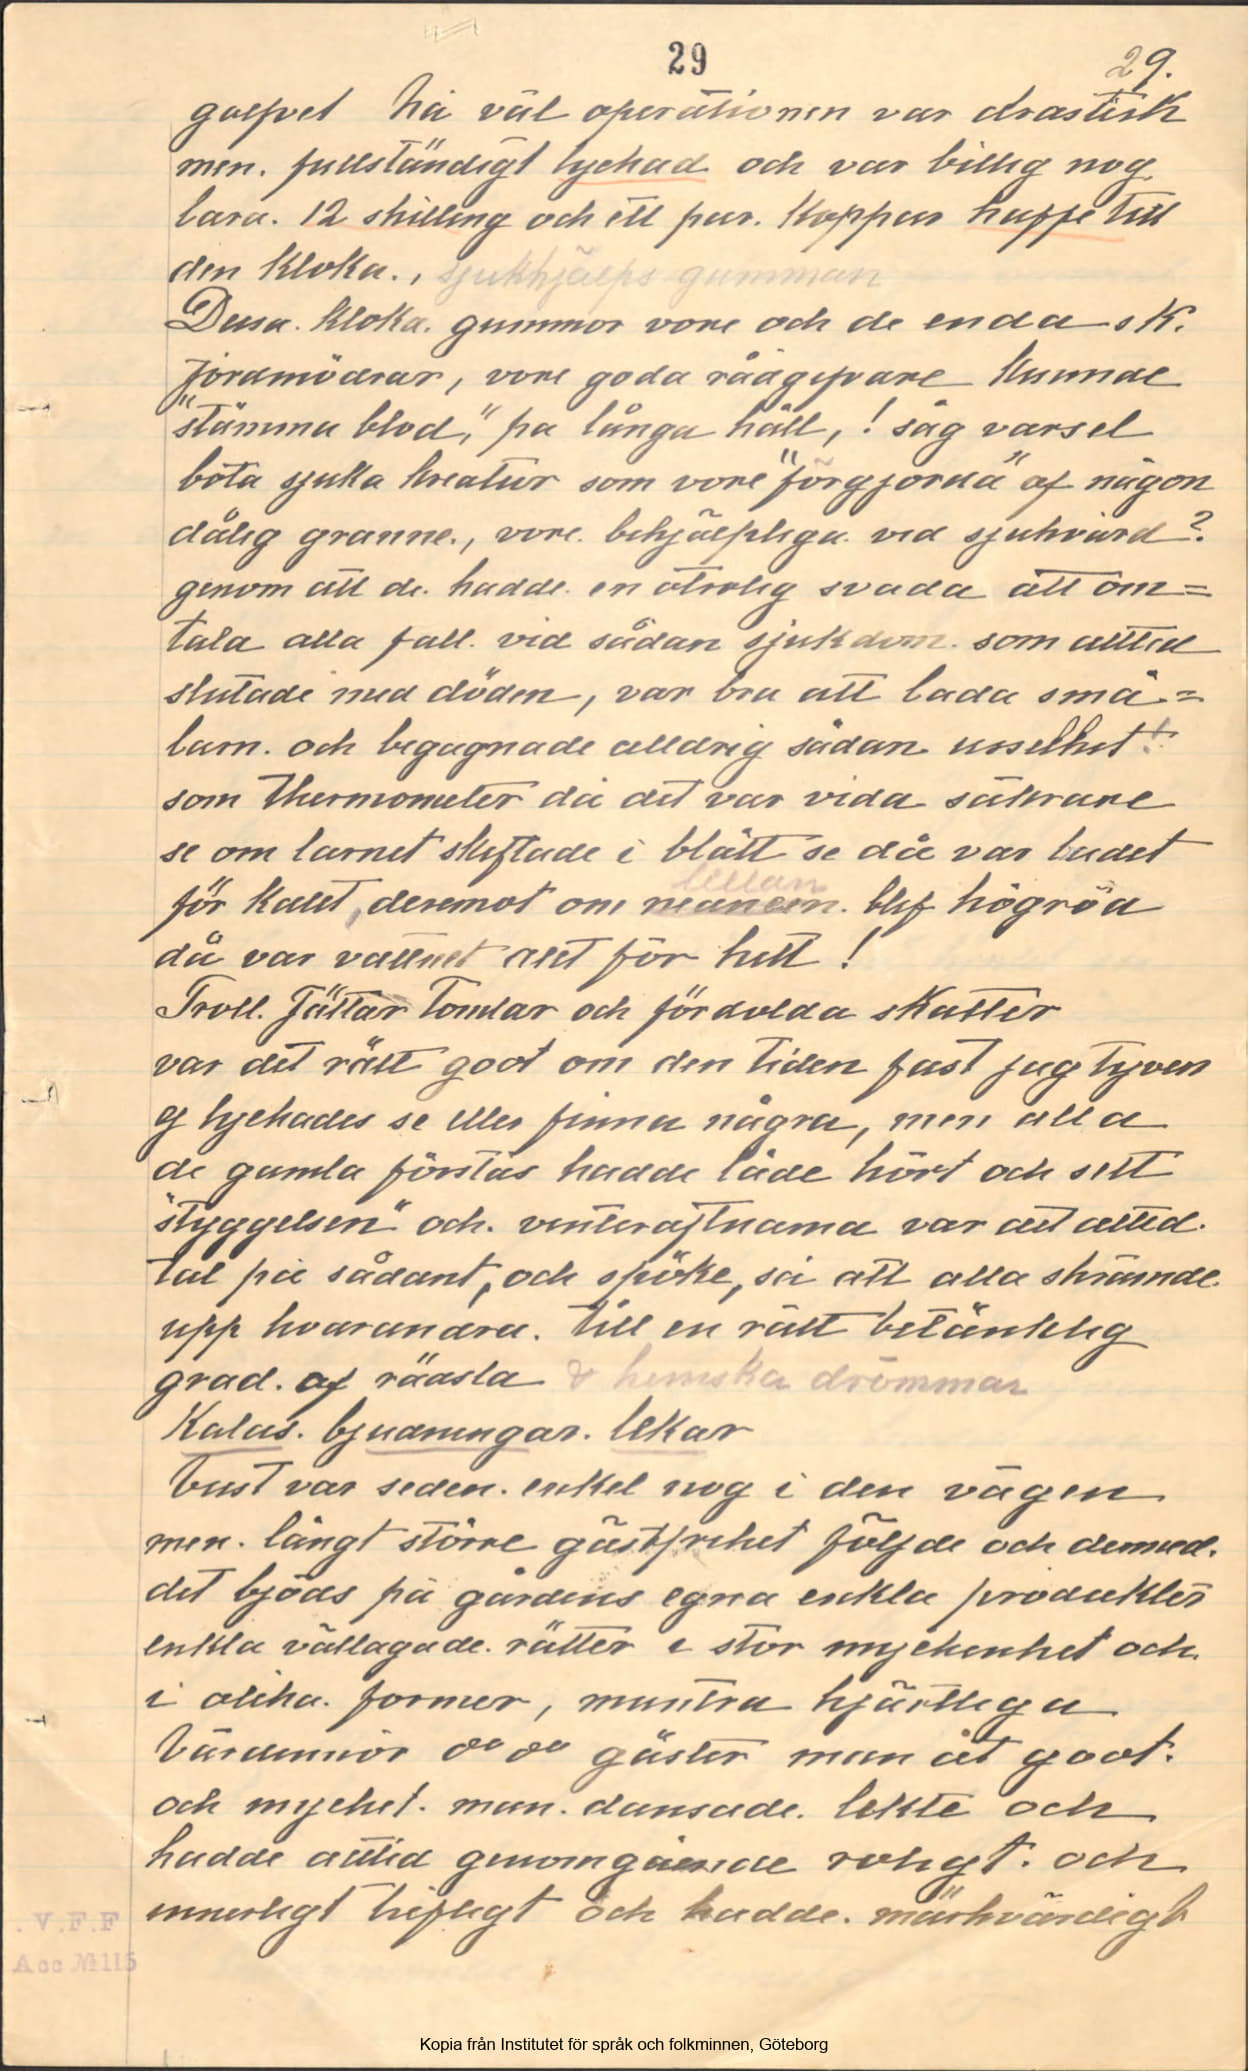 29
29.
golfvet Nå väl operationen var drastisk
men. fullständigt lyckad och var billig nog
bara. 12 skilling och ett par. Koppar kaffe till
den kloka., sjukhjälps gumman
Dessa. kloka. gummor vore och de enda s K.
jordmödrar, vore goda rådgifvare kunnde
"stämma blod," på långa håll, ! såg varsel
bota sjuka kreatur som vore "förgjorda" af någon
dålig granne., vore. behjälpliga vid sjukvård ?
genom att de. hadde. en otrolig svada att om=
tala alla fall. vid sådan sjukdom. som alltid
slutade med döden, var bra att bada små=
barn. och begagnade alldrig sådan usselhet !
som thermometer då det var vida säkrare
se om barnet skiftade i blått se då var badet
för kallt, deremot om lillan
blef högröd
då var vattnet allt för hett !
Troll. Jättar Tomtar och fördolda skatter
var det rätt godt om den tiden fast jag tyvär
ej lyckades se eller finna några, men alla
de gamla förstås hadde både hört och sett
"styggelsen" och. vinteraftnarna var det alltid.
tal på sådant, och spöke, så att alla skrämde.
upp hvarandra. till en rätt betänklig
grad. af rädsla & hemska drömmar
Kalas. bjudningar. lekar
Visst var seden. enkel nog i den vägen
men. långt större gästfrihet följde och dermed.
det bjöds på gårdens egna enkla produkter
enkla vällagade. rätter i stor myckenhet och.
i olika. former, muntra hjärtliga
Värdinnor gäster man åt godt.
och mycket. man. dansade. lekte och
hadde alltid genomgående roligt. och
innerligt trefligt och hadde. märkvärdigt
. V.F.F
Acc № 115
Kopia från Institutet för språk och folkminnen, Göteborg